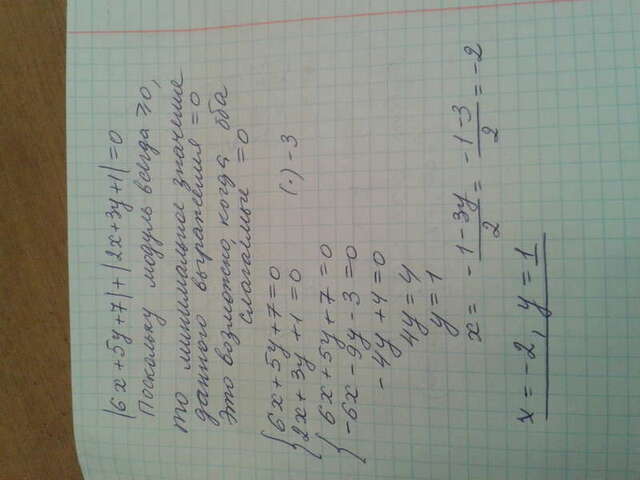 |6x+5y+7|+|2x+3y+1|=0
Поскольку модуль всегда ≥0,
то минимальное значение
данного выражения =0
Это возможно, когда оба
слагаемые =0
{6x+5y+7=0
{2x+3y+1=0 (·)-3
{6x+5y+7=0
{-6x-9y-3=0
-4y+4=0
4y=4
y=1
x= -1-3y/2 = -1-3/2 = -2
x=-2, y=1